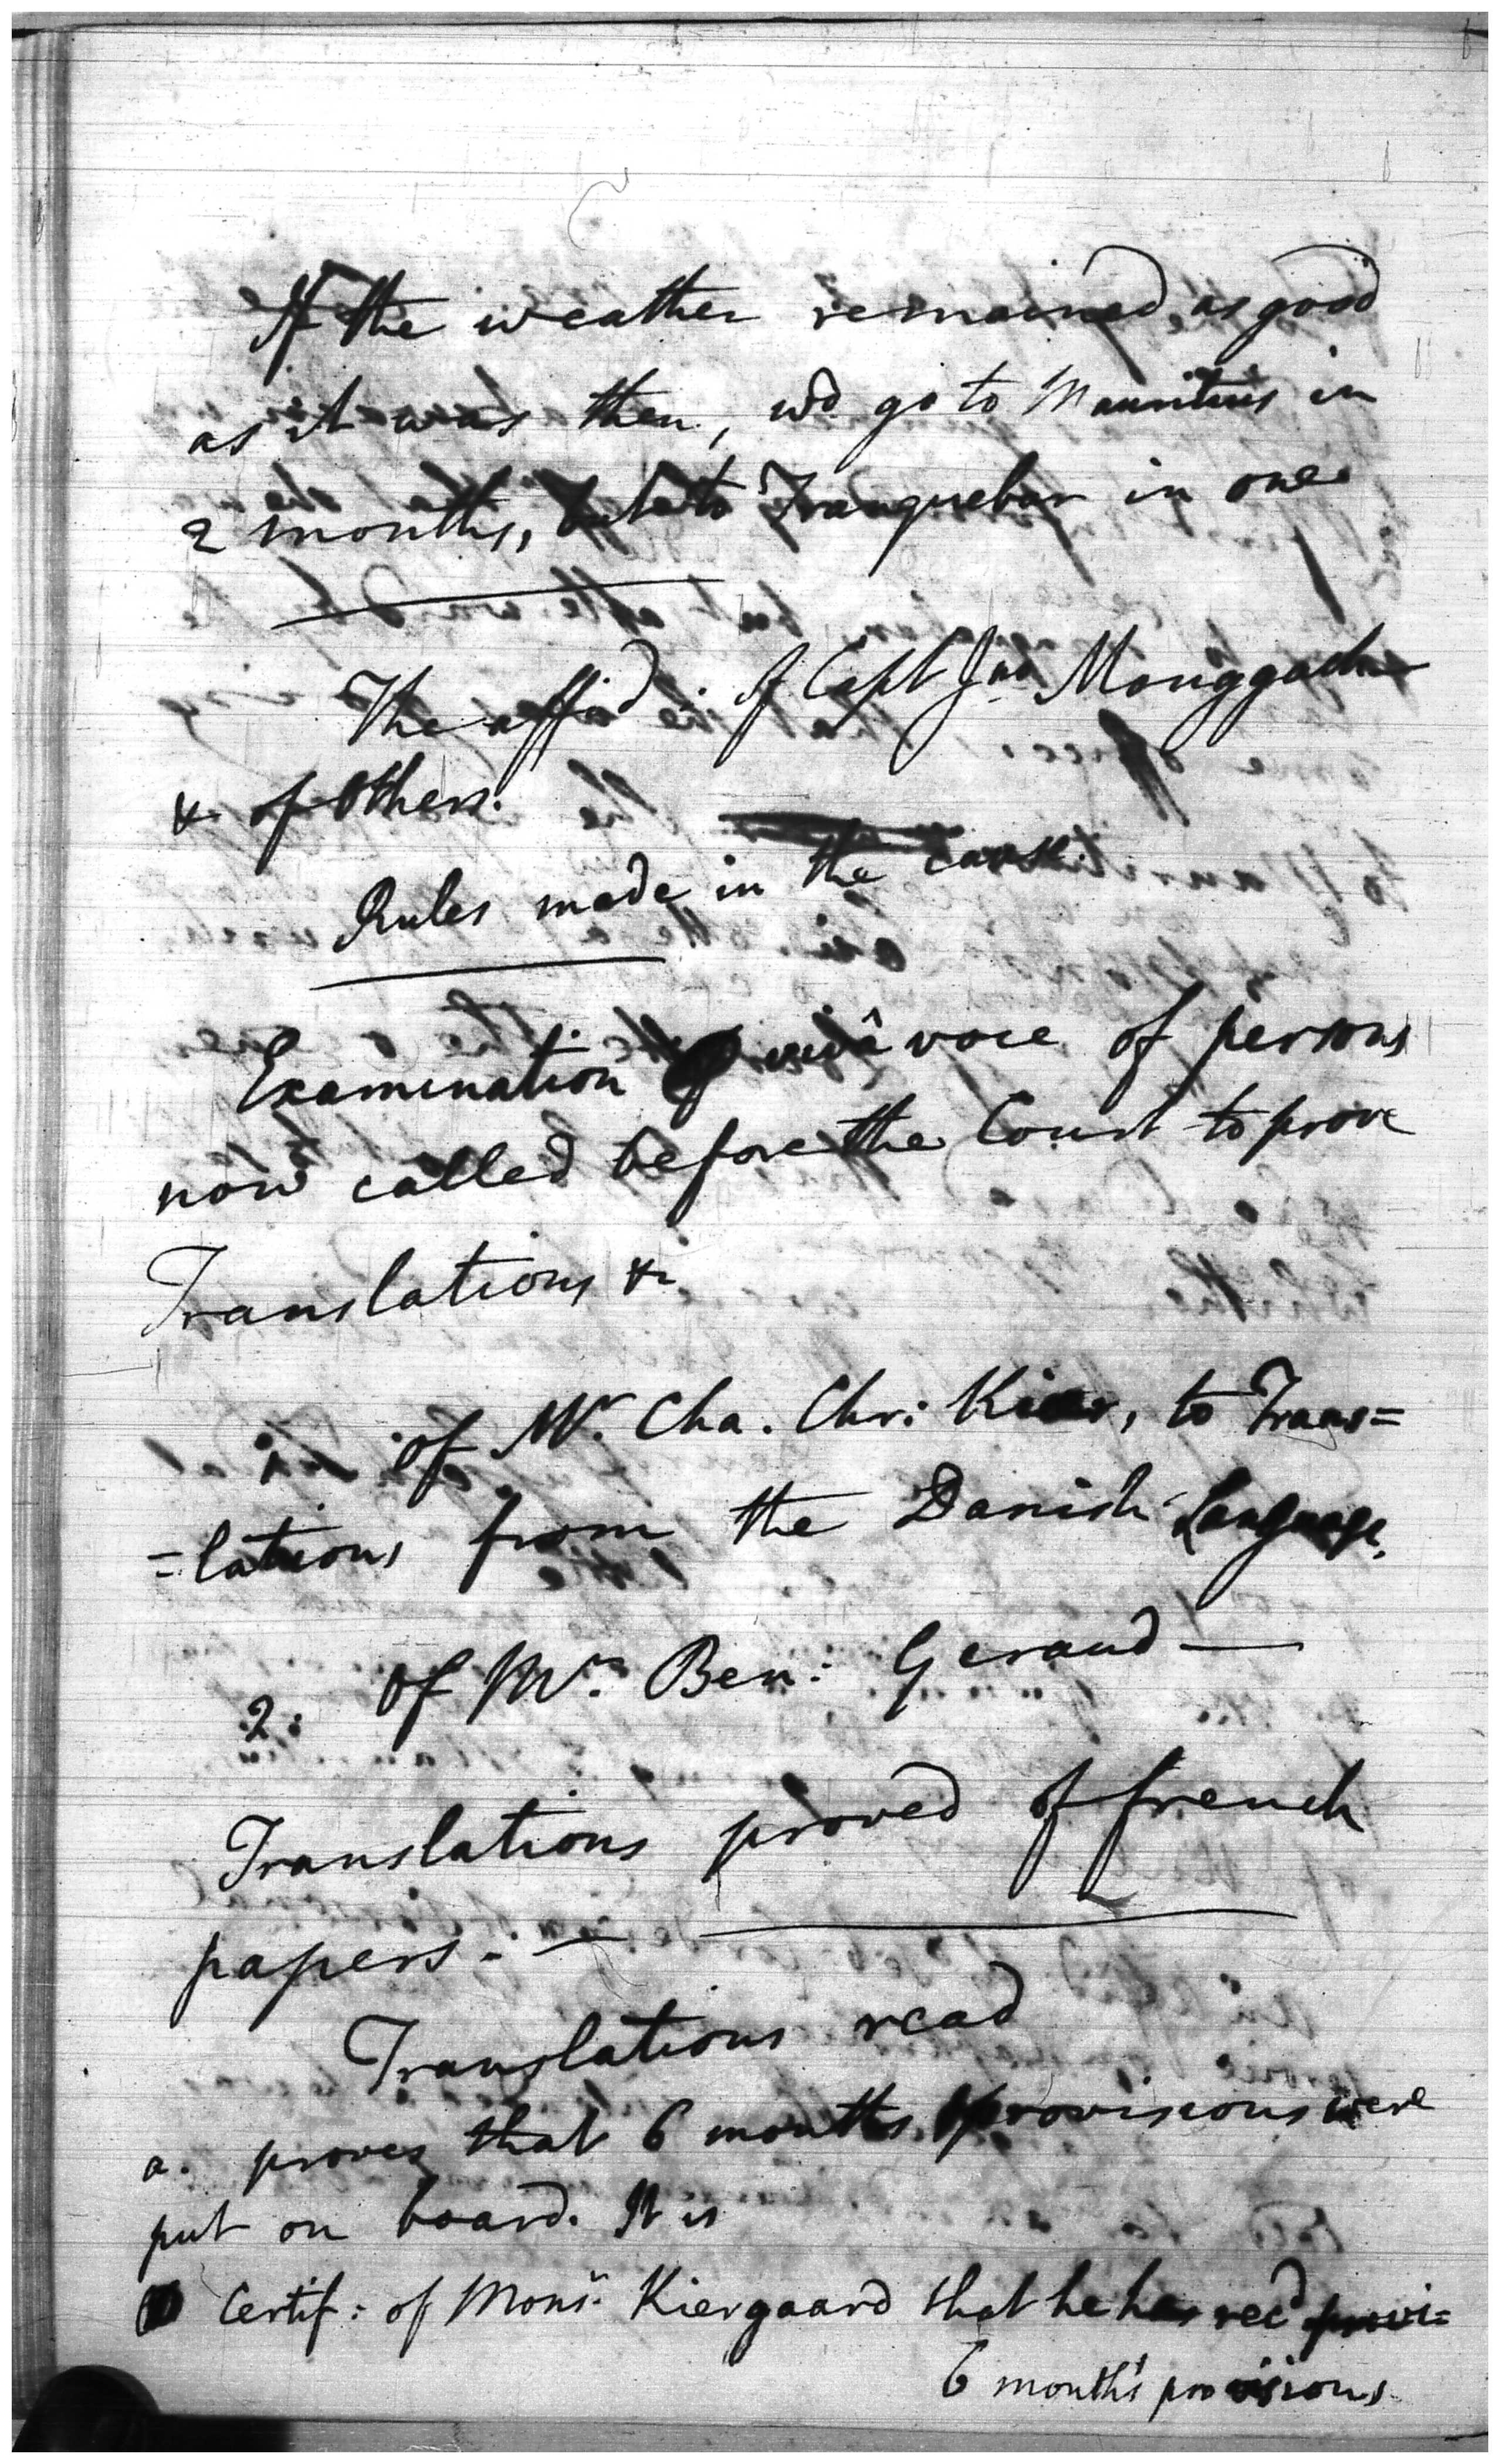 If the weather remained, as good
as it was then, wd go to Mauritius in
2 months, but to Tranquebar in one
The affid. of Capt Jno Monggach
& of others.
Rules made in the cause.
Examination vivâ voce of persons
now called before the Court to prove
Translations &c
1. of Mr. Cha. Chr: Kier, to Trans=
=lations from the Danish Language.
2. Of Mr. Ben: Geraud —
Translations proved of french
papers. —
Translations read
a. proves that 6 months provisions were
put on board. It is
Certif: of Monsr. Kiergaard that he has recd provi=
6 month's provisions.